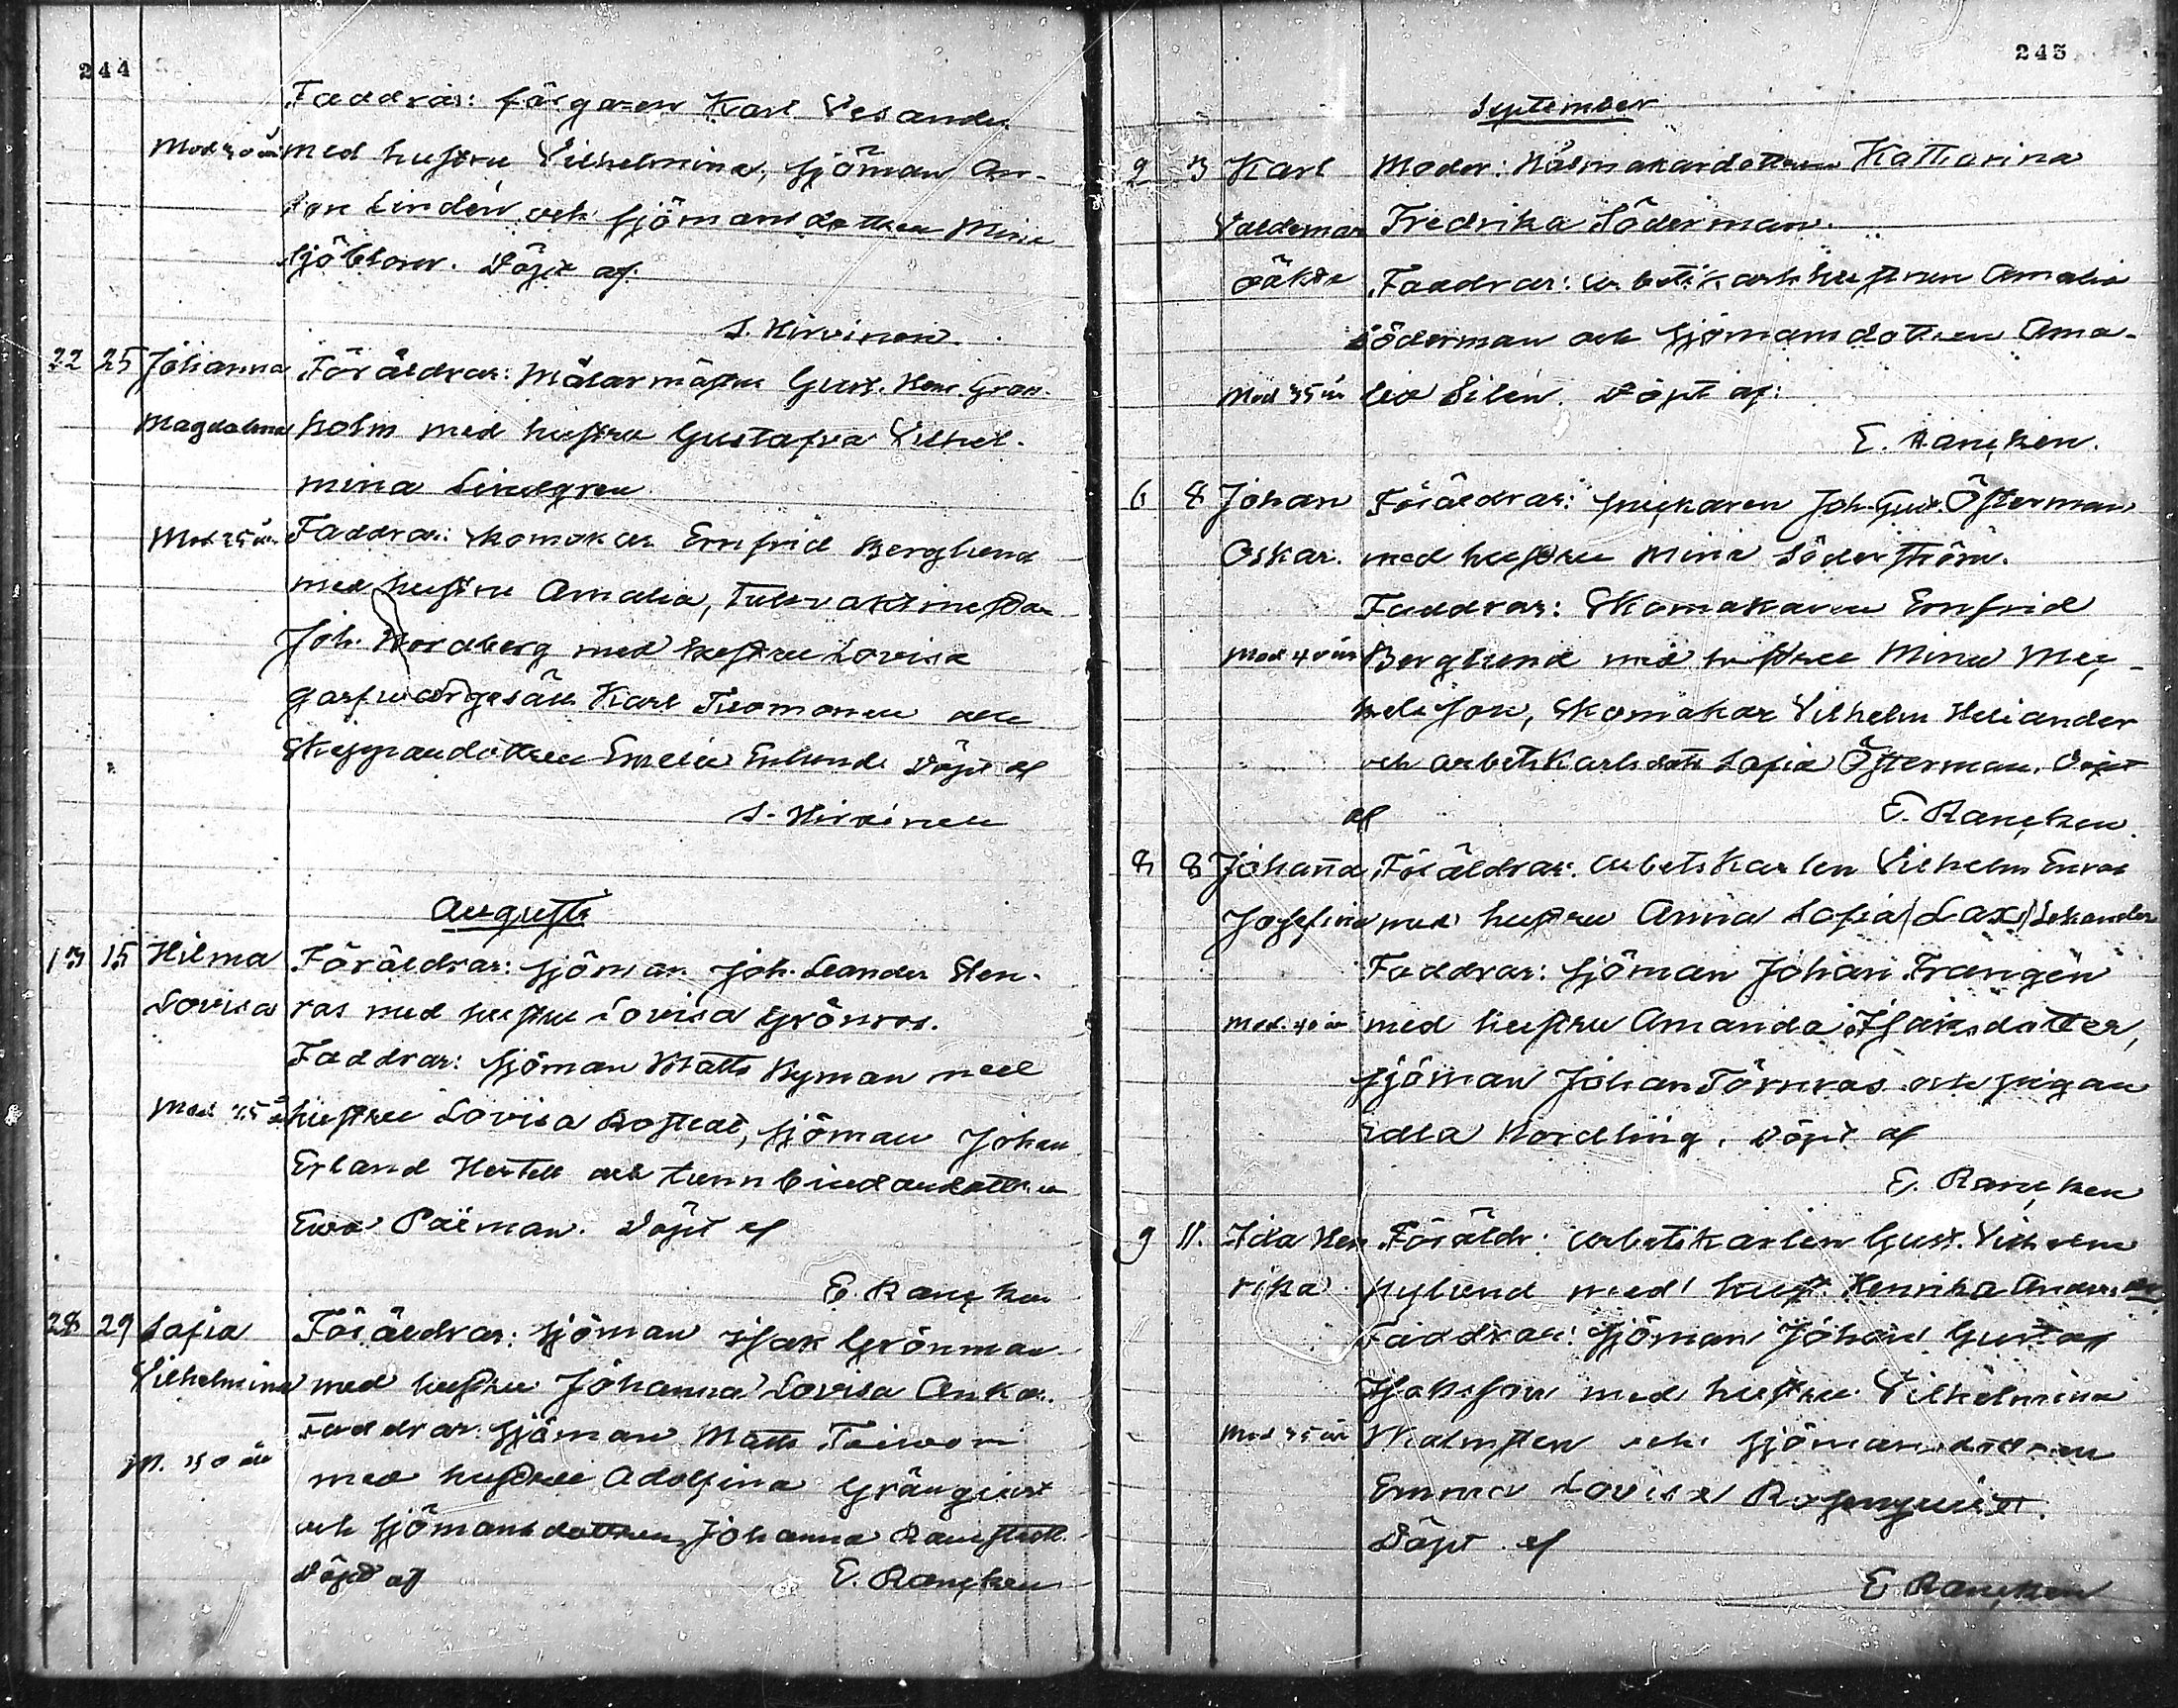 244
Faddrar: färgaren Karl Vesander
Mod 30 år med hustru Vilhelmina, sjöman An-
ton Lindén och sjömansdottren Mina
Sjöblom. Döpt af.
S. Hirvinen
22 25 Johanna Föräldrar: Målarmästar Gust. Henr. Gran-
Magdalena holm med hustru Gustafva Vilhel-
mina Lindgren
Mod 25 år Faddrar: Skomakar Ernfrid Berglund
med hustru Amalia, Tullvaktmästar
Joh. Nordberg med hustru Lovisa
garfwargesäll Karl Tuomonen och
Skepparedottren Emelie Enlund. Döpt af
S. Hirvinen
Augusti
13 15 Hilma Föräldrar: sjöman Joh. Leander Sten-
Lovisa ros med hustru Lovisa Grönros.
Faddrar: sjöman Matts Nyman med
Mod 25 år hustru Lovisa Rostedt, sjöman Johan
Erland Hertell och tunnbindaredottren
Ewa Påiman. Döpt af
E. Rancken
28 29 Sofia Föräldrar: sjöman Isak Grönman
Vilhelmina med hustru Johanna Lovisa Ankar.
Faddrar: sjöman Matts Toiwon
M. 30 år med hustru Adolfina Gränqvist
och sjömansdottren Johanna Ranstedt.
Döpt af E. Rancken
243
September
2 3 Karl Moder: Målmakardottren Katharina
Valdemar Fredrika Söderman.
oäkta Faddrar: arbetsk. och hustrun Amalia
Söderman och sjömansdottren Ama-
Mod 35 år lia Silén. Döpt af:
E. Rancken.
6 8 Johan Föräldrar: snickaren Joh. Gust. Österman
Oskar. med hustru Mina Söderström.
Faddrar: Skomakaren Ernfrid
Mod 40 år Berglund med hustru Mina Mic-
kelsson, Skomakar Vilhelm Heliander
och arbetskarlsdott. Sofia Österman. Döpt
af E. Rancken.
8 8 Johanna Föräldrar: arbetskarlen Vilhelm Enros
Josefina med hustru Anna Sofia (Lax) Lekander
Faddrar: sjöman Johan Frangén
Mod. 40 år med hustru Amanda Isaksdotter,
sjöman Johan Törnros och pigan
Edla Nordling. Döpt af
E. Rancken
9 11. Ida Hen Föräldr: arbetskarlen Gust. Vilhelm
rika Nylund med hust. Henrika Anders dr
Faddrar: sjöman Johan Gustaf
Isaksson med hustru Vilhelmina
Mod 35 år Malmsten och sjömansdottren
Emma Lovisa Rosenquist.
Döpt af
E Rancken